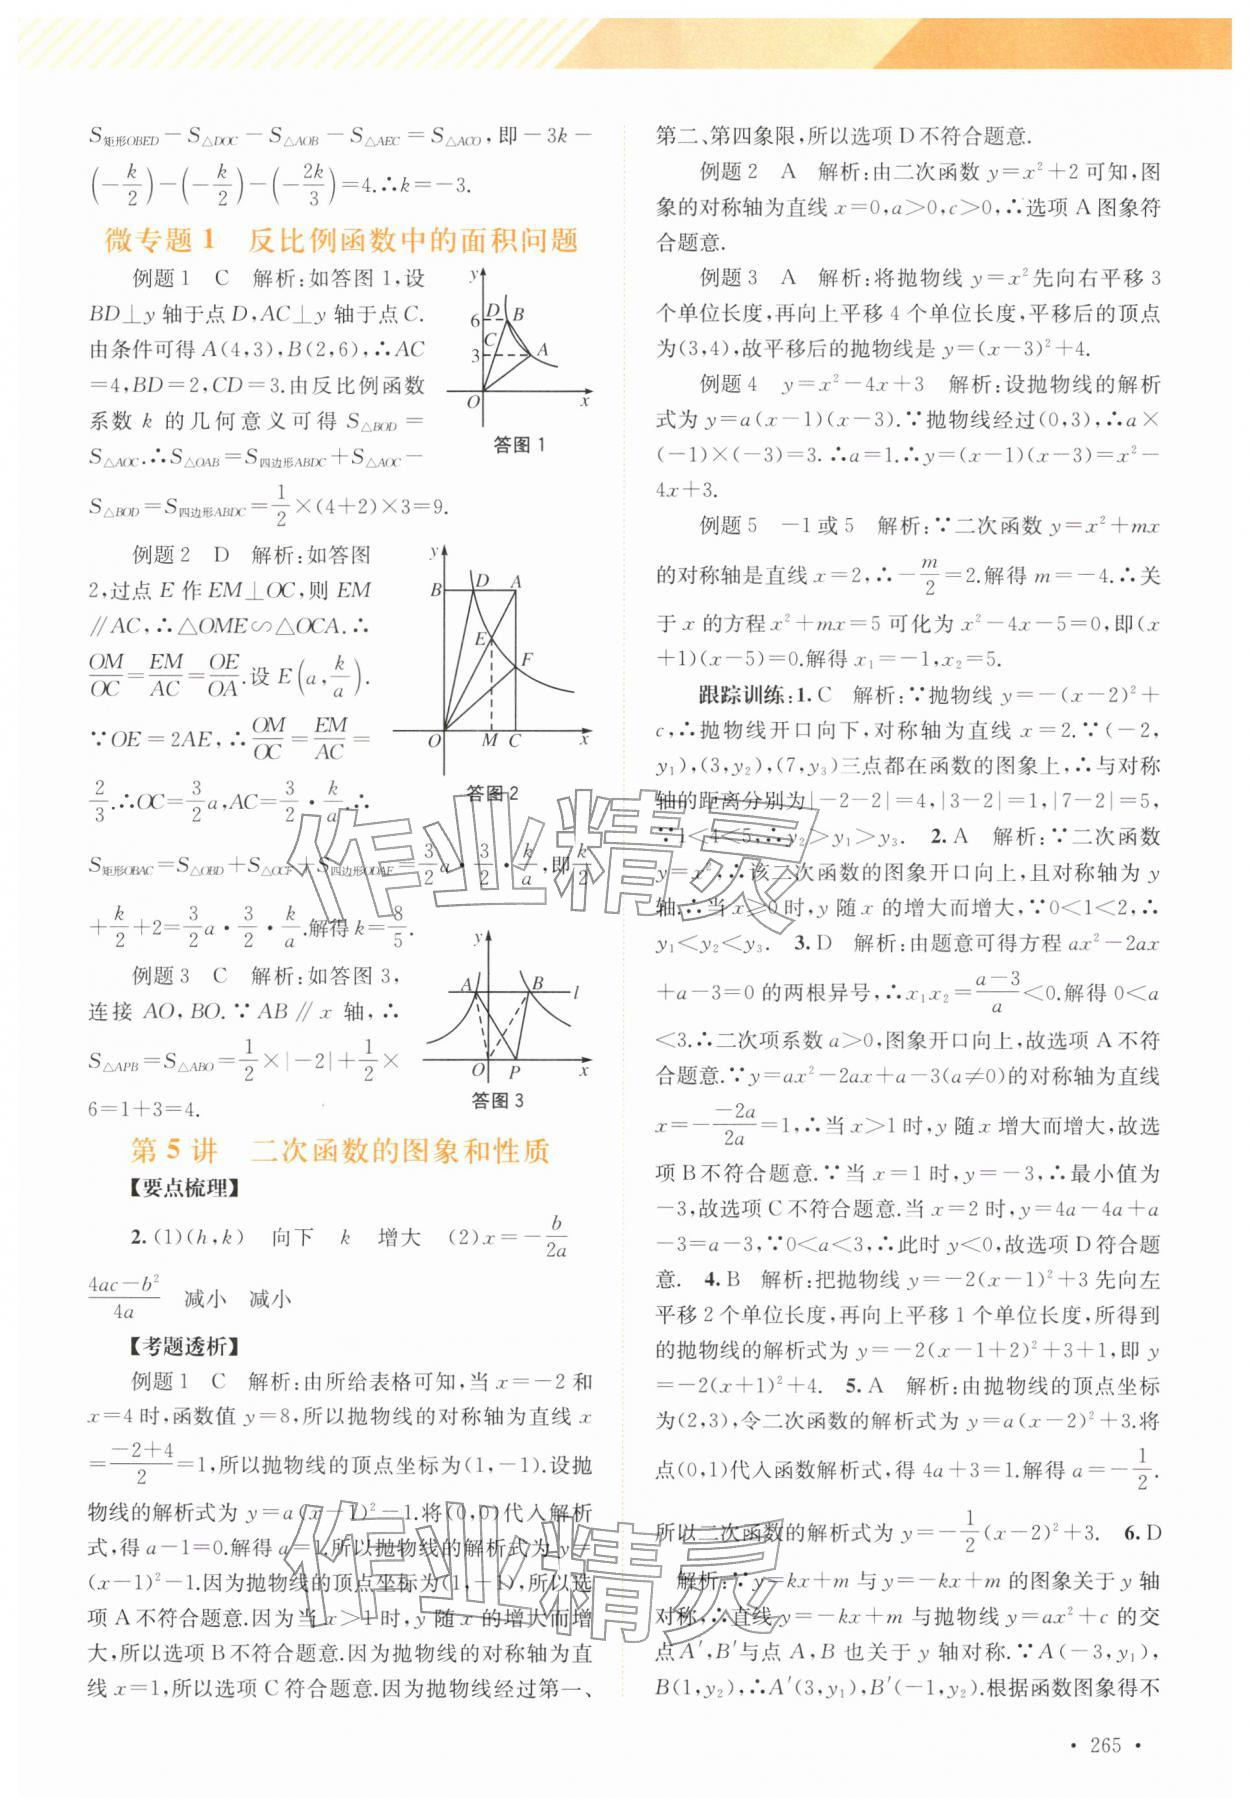 S矩形OBED－S△DOC－S△AOB－S△AEC＝S△ACO,即－3k－
(－k/2)－(－k/2)－(－2k/3)＝4.∴k＝－3.
微专题1 反比例函数中的面积问题
例题1 C 解析:如答图1,设
BD⊥y轴于点D,AC⊥y轴于点C.
由条件可得A(4,3),B(2,6),∴AC
＝4,BD＝2,CD＝3.由反比例函数
系数k的几何意义可得S△BOD＝
S△AOC.∴S△OAB＝S四边形ABDC＋S△AOC－
S△BOD＝S四边形ABDC＝1/2×(4＋2)×3＝9.
y
6
D
B
C
3
A
O
x
答图1
例题2 D 解析:如答图
2,过点E作EM⊥OC,则EM
∥AC,∴△OME∽△OCA.∴
OM/OC＝EM/AC＝OE/OA.设E(a,k/a).
∵OE＝2AE,∴OM/OC＝EM/AC＝
2/3.∴OC＝3/2a,AC＝3/2·k/a.∴
S矩形OBAC＝S△OBD＋S△OCF＋S四边形ODAF＝3/2a·3/2·k/a,即k/2
＋k/2＋2＝3/2a·3/2·k/a.解得k＝8/5.
y
B
D
A
E
F
O
M
C
x
答图2
例题3 C 解析:如答图3,
连接AO,BO.∵AB∥x轴,∴
S△APB＝S△ABO＝1/2×|－2|＋1/2×
6＝1＋3＝4.
y
A
B
l
O
P
x
答图3
第5讲 二次函数的图象和性质
【要点梳理】
2.(1)(h,k) 向下 k 增大 (2)x＝－b/2a
4ac－b²/4a 减小 减小
【考题透析】
例题1 C 解析:由所给表格可知,当x＝－2和
x＝4时,函数值y＝8,所以抛物线的对称轴为直线x
＝－2＋4/2＝1,所以抛物线的顶点坐标为(1,－1).设抛
物线的解析式为y＝a(x－1)²－1.将(0,0)代入解析
式,得a－1＝0.解得a＝1.所以抛物线的解析式为y＝
(x－1)²－1.因为抛物线的顶点坐标为(1,－1),所以选
项A不符合题意.因为当x＞1时,y随x的增大而增
大,所以选项B不符合题意.因为抛物线的对称轴为直
线x＝1,所以选项C符合题意.因为抛物线经过第一、
第二、第四象限,所以选项D不符合题意.
例题2 A 解析:由二次函数y＝x²＋2可知,图
象的对称轴为直线x＝0,a＞0,c＞0,∴选项A图象符
合题意.
例题3 A 解析:将抛物线y＝x²先向右平移3
个单位长度,再向上平移4个单位长度,平移后的顶点
为(3,4),故平移后的抛物线是y＝(x－3)²＋4.
例题4 y＝x²－4x＋3 解析:设抛物线的解析
式为y＝a(x－1)(x－3).∵抛物线经过(0,3),∴a×
(－1)×(－3)＝3.∴a＝1.∴y＝(x－1)(x－3)＝x²－
4x＋3.
例题5 －1或5 解析:∵二次函数y＝x²＋mx
的对称轴是直线x＝2,∴－m/2＝2.解得m＝－4.∴关
于x的方程x²＋mx＝5可化为x²－4x－5＝0,即(x
＋1)(x－5)＝0.解得x₁＝－1,x₂＝5.
跟踪训练:1.C 解析:∵抛物线y＝－(x－2)²＋
c,∴抛物线开口向下,对称轴为直线x＝2.∵(－2,
y₁),(3,y₂),(7,y₃)三点都在函数的图象上,∴与对称
轴的距离分别为|－2－2|＝4,|3－2|＝1,|7－2|＝5,
∵1＜4＜5,∴y₂＞y₁＞y₃. 2.A 解析:∵二次函数
y＝x²,∴该二次函数的图象开口向上,且对称轴为y
轴.∴当x≥0时,y随x的增大而增大,∵0＜1＜2,∴
y₁＜y₂＜y₃. 3.D 解析:由题意可得方程ax²－2ax
＋a－3＝0的两根异号,∴x₁x₂＝a－3/a＜0.解得0＜a
＜3.∴二次项系数a＞0,图象开口向上,故选项A不符
合题意.∵y＝ax²－2ax＋a－3(a≠0)的对称轴为直线
x＝－－2a/2a＝1,∴当x＞1时,y随x增大而增大,故选
项B不符合题意.∵当x＝1时,y＝－3,∴最小值为
－3,故选项C不符合题意.当x＝2时,y＝4a－4a＋a
－3＝a－3,∵0＜a＜3,∴此时y＜0,故选项D符合题
意. 4.B 解析:把抛物线y＝－2(x－1)²＋3先向左
平移2个单位长度,再向上平移1个单位长度,所得到
的抛物线的解析式为y＝－2(x－1＋2)²＋3＋1,即y
＝－2(x＋1)²＋4. 5.A 解析:由抛物线的顶点坐标
为(2,3),令二次函数的解析式为y＝a(x－2)²＋3.将
点(0,1)代入函数解析式,得4a＋3＝1.解得a＝－1/2.
所以二次函数的解析式为y＝－1/2(x－2)²＋3. 6.D
解析:∵y＝kx＋m与y＝－kx＋m的图象关于y轴
对称,∴直线y＝－kx＋m与抛物线y＝ax²＋c的交
点A′,B′与点A,B也关于y轴对称.∵A(－3,y₁),
B(1,y₂),∴A′(3,y₁),B′(－1,y₂).根据函数图象得不
作业精灵
作业精灵
·265·